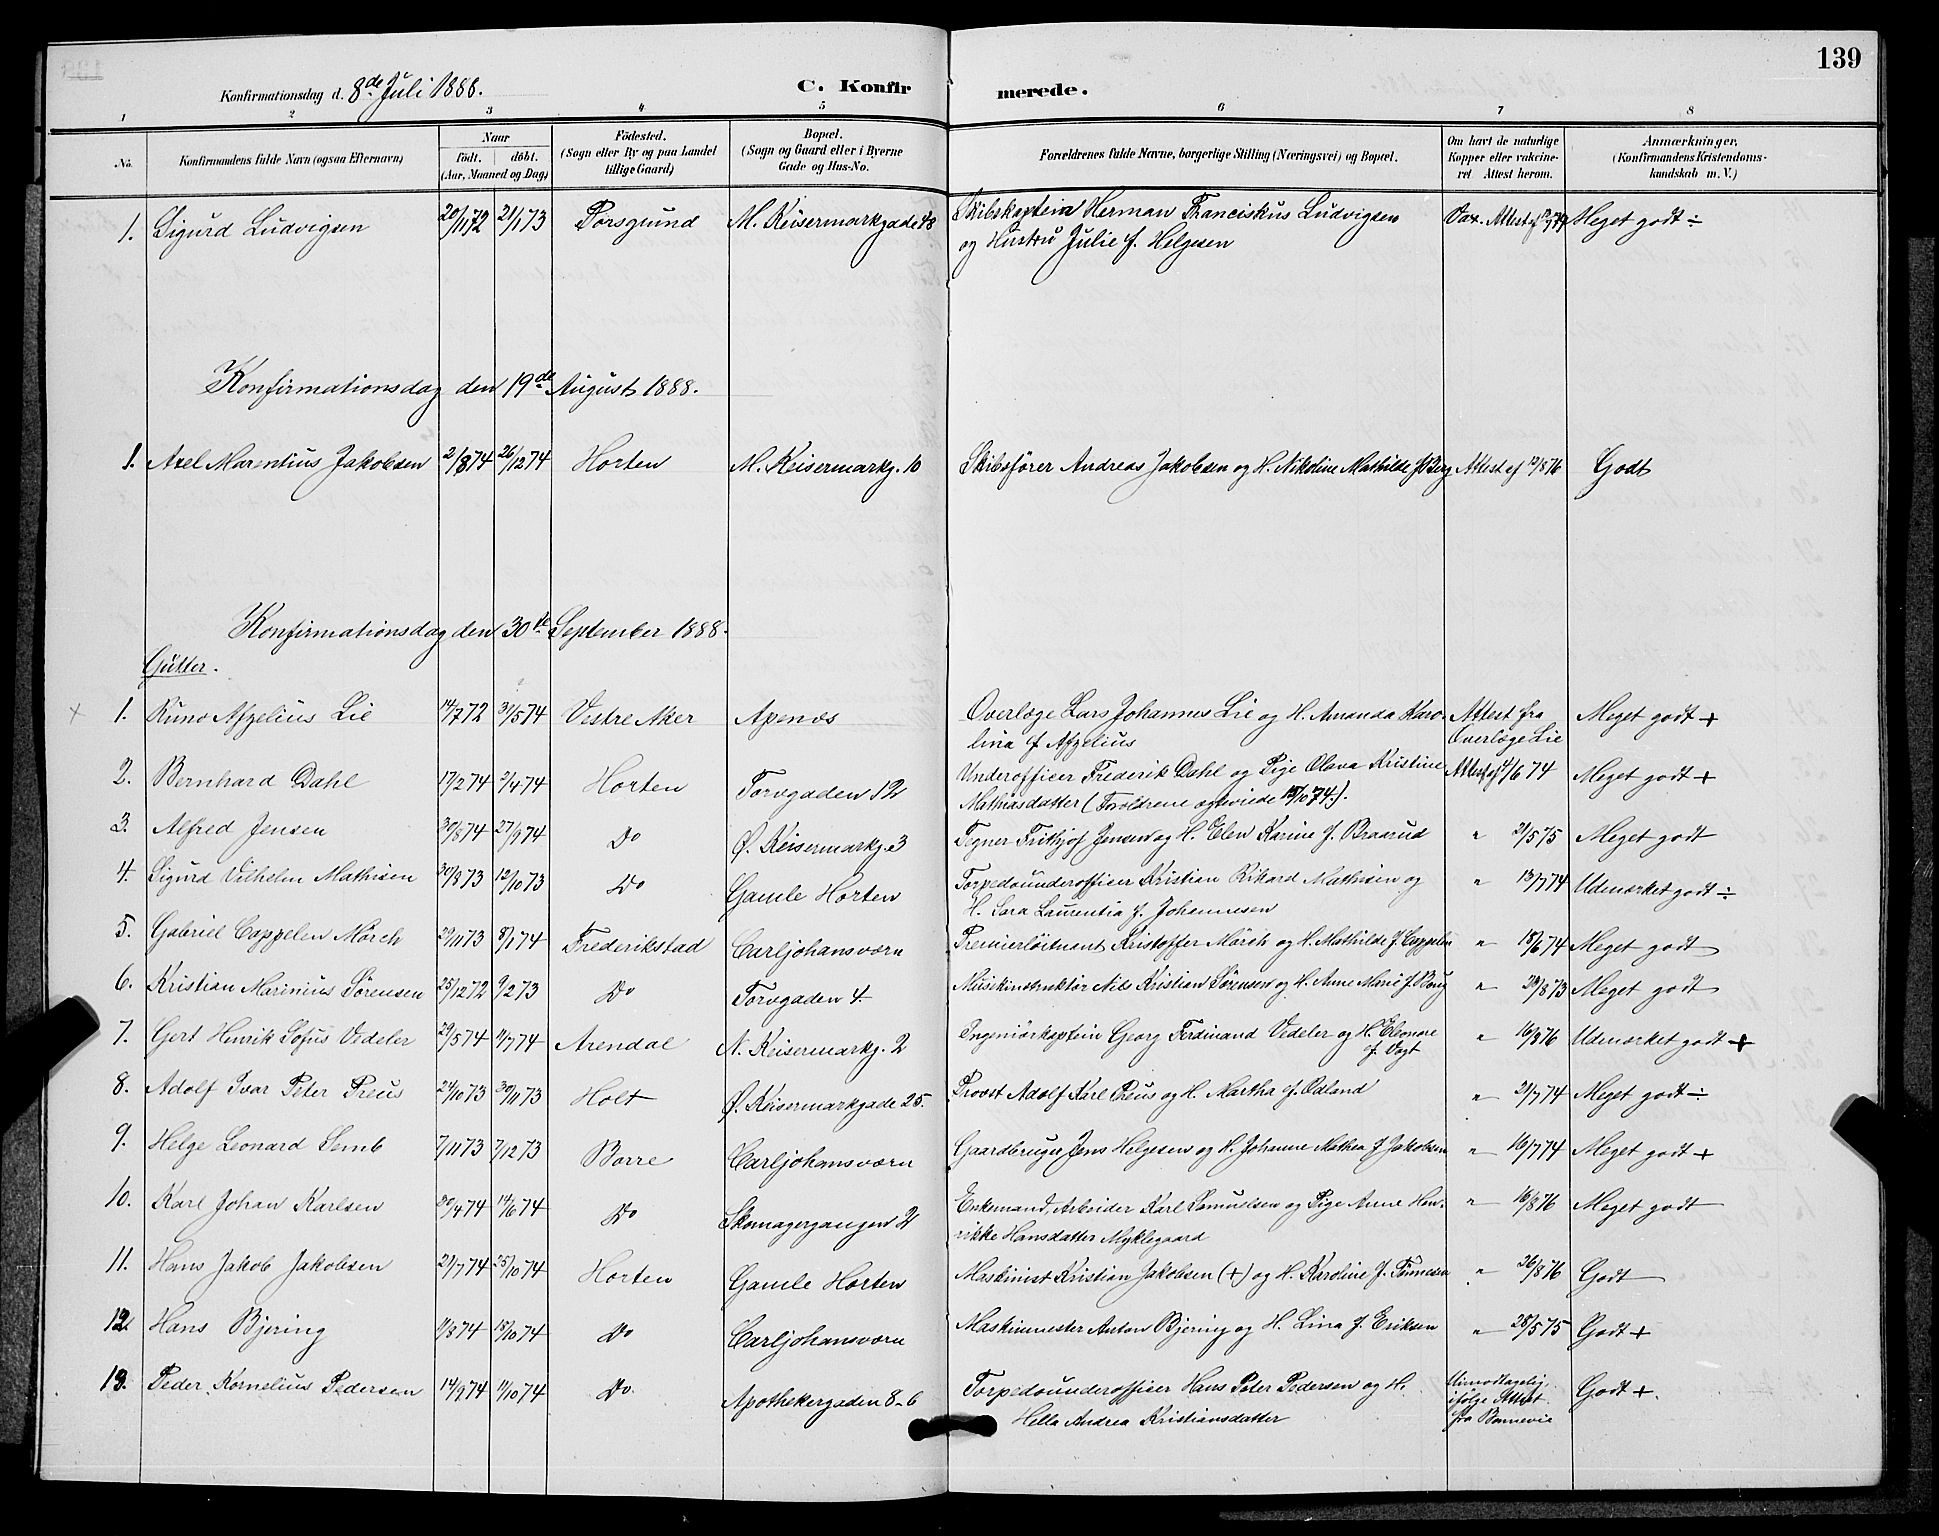 139
Konfirmationsdag d. 8de Juli 1888. C. Konfirmerede.
1 2 3 4 5 6 7 8
No. Konfirmandens fulde Navn (ogsaa Efternavn) Naar født. døbt. (Aar, Maaned og Dag) Födested. (Sogn eller By og paa Landet tillige Gaard) Bopæl. (Sogn og Gaard eller i Byerne Gade og Hus-No. Forældrenes fulde Navne, borgerlige Stilling (Næringsvei) og Bopæl. Om havt de naturlige Kopper eller vakcineret Attest herom. Anmærkninger, (Konfirmandens Kristendomskundskab m. V.)
1. Sigurd Ludvigsen 20/11 72 21/1 73 Porsgrund M. Keisermarkgade 18 Skibskaptein Herman Franciskus Ludvigsen Vax. Attest af Meget godt ÷
og Hustru Julie f. Helgesen
Konfirmationsdag den 19de August 1888.
1. Axel Marentius Jakobsen 2/8 74 26/12 74 Horten M. Keisermarkg. 10 Skibsfører Andreas Jakobsen og H. Nikoline Mathilde f. Berg Attest af 12/8 76 Godt
Konfirmationsdag den 30te September 1888.
Gutter.
× 1. Runo Afzelius Lie 14/7 72 31/5 74 Vestre Aker Apenæs Overlæge Lars Johannes Lie og H. Amanda Karo- Attest fra Meget godt +
lina f Afzelius Overlæge Lie
2. Bernhard Dahl 17/2 74 2/4 74 Horten Torvgaden 12 Underofficer Frederik Dahl og Pige Olava Kristine Attest af 4/6 74 Meget godt +
Mathiasdatter (Forældrene ægteviede 18/10 74).
3. Alfred Jensen 30/8 74 27/9 74 Do Ø. Keisermarkg. 3 Tegner Frithjof Jensen og H. Elen Karine f. Braarud " 21/5 75 Meget godt
4. Sigurd Vilhelm Mathisen 30/8 73 12/10 73 Do Gamle Horten Torpedounderofficer Kristian Rikard Mathisen og " 13/7 74 Udmærket godt ÷
H. Sara Laurentia f. Johannesen
5. Gabriel Cappelen Mörch 29/11 73 8/1 74 Frederikstad Carljohansværn Premierløitnant Kristoffer Mörch og H. Mathilde f. Cappelen " 18/6 74 Meget godt
6. Kristian Marinius Sörensen 25/12 72 9/2 73 Do Torvgaden 4 Musikinstruktør Nils Kristian Sørensen og H. Anne Marie f. " 29/8 73 Meget godt
7. Gert Henrik Sofus Vedeler 29/5 74 11/7 74 Arendal N. Keisermarkg. 2 Ingeniörkaptein Georg Ferdinand Vedeler og H. Eleonore " 16/8 76 Udmærket godt +
f. Vogt
8. Adolf Ivar Peter Preus 24/10 73 30/11 73 Holt Ø. Keisermarkgade 25. Provst Adolf Karl Preus og H. Martha f. Odland " 21/7 74 Meget godt ÷
9. Helge Leonard Semb 7/11 73 7/12 73 Borre Carljohansværn Gaardbruger Jens Helgesen og H. Johanne Mathea f Jakobsen " 16/7 74 Meget godt +
10. Karl Johan Karlsen 20/4 74 14/6 74 Do Skomagergangen 2 Enkemand, Arbeider Karl Samuelsen og Pige Anne Hen- " 16/8 76 Meget godt
rikke Hansdatter Myklegaard
11. Hans Jakob Jakobsen 21/7 74 25/10 74 Horten Gamle Horten Maskinist Kristian Jakobsen (+) og H. Karoline f. Tönnesen " 26/8 76 Godt
12. Hans Bjering 11/8 74 18/10 74 Do Carljohansværn Maskinmester Anton Bjering og H. Lina f. Eriksen " 28/5 75 Godt +
13. Peder Kornelius Pedersen 14/9 74 11/10 74 Do Apothekergaden 8-6 Torpedounderofficer Hans Peter Pedersen og H. Uimodtagelig Godt +.
Hella Andrea Kristiansdatter ifølge Attest
fra